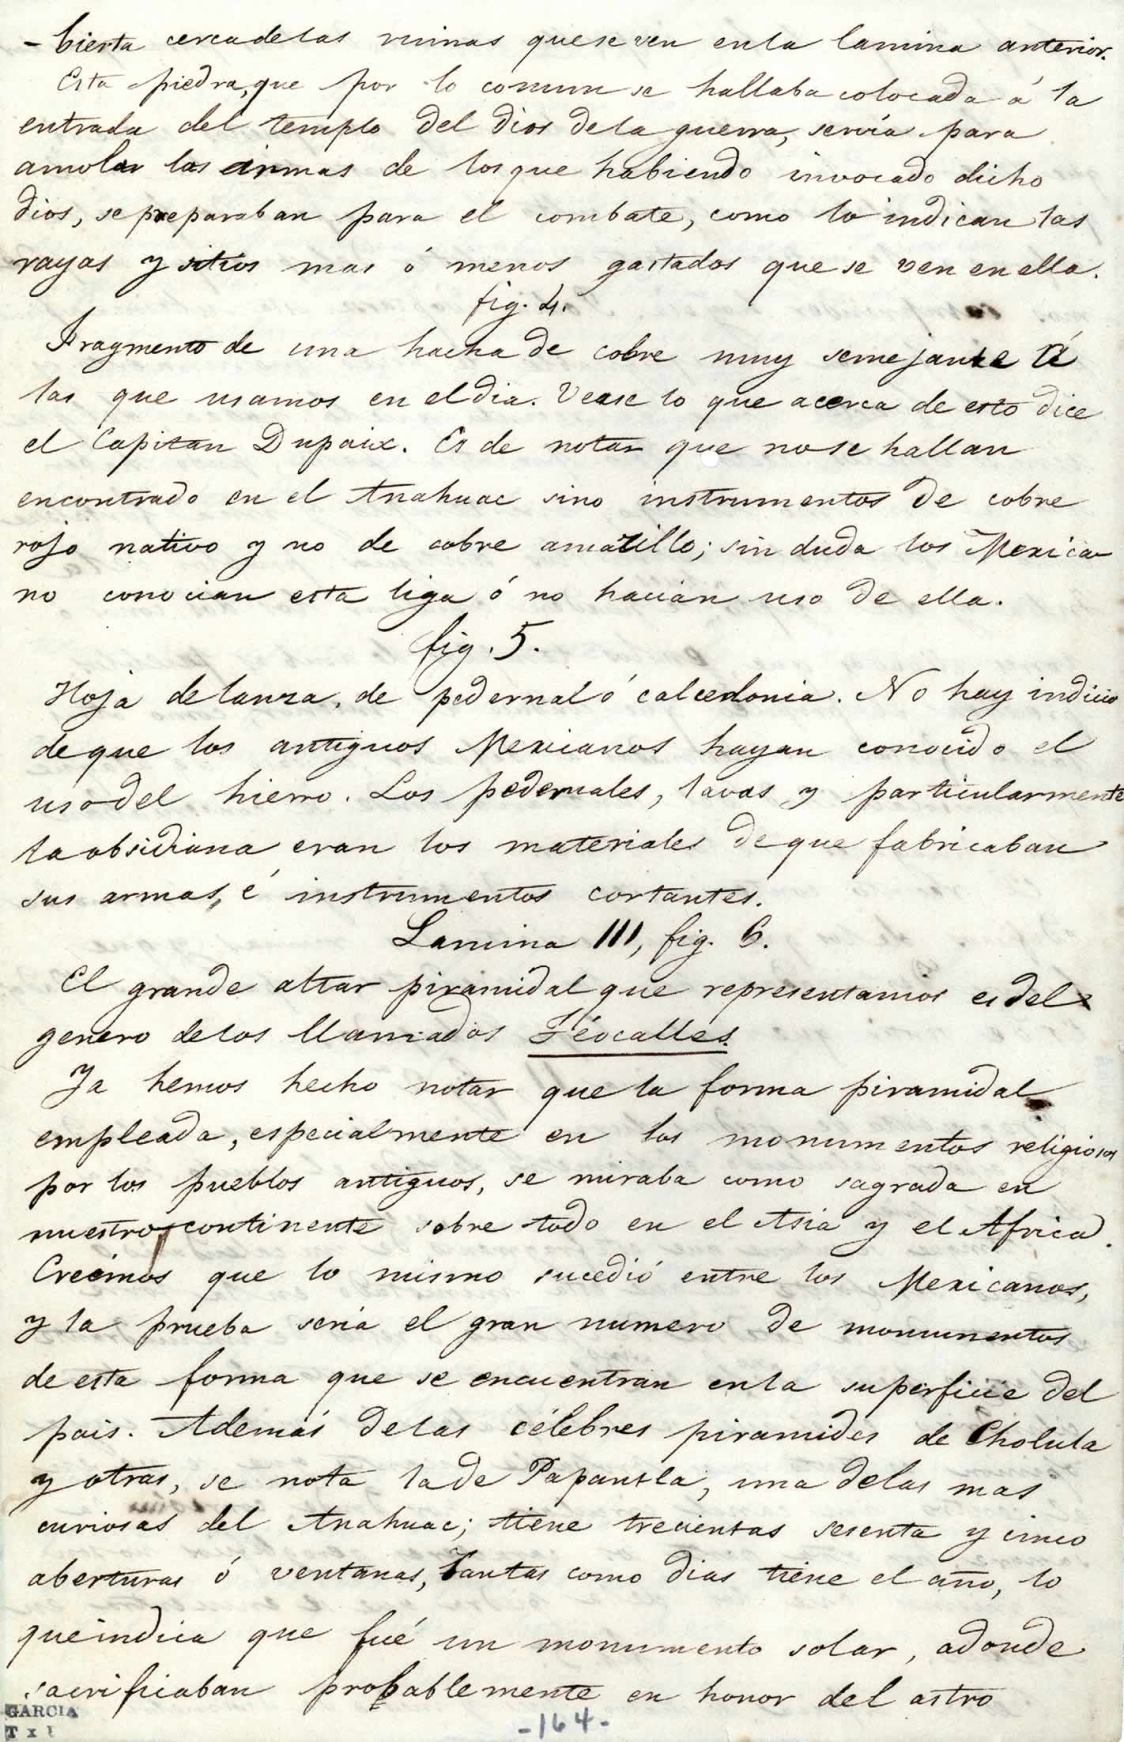 - bierta cerca de las ruinas que se ven en la lamina anterior.
Esta piedra, que por lo comun se hallaba colocada á la
entrada del templo del dios de la guerra, servia para
amolar las armas de los que habiendo invocado dicho
dios, se preparaban para el combate, como lo indican las
rayas y sitios mas ó menos gastados que se ven en ella.
fig. 4.
Fragmento de una hacha de cobre muy semejante á
las que usamos en el dia. Vease lo que acerca de esto dice
el Capitan Dupaix. Es de notar que no se hallan
encontrado en el Anahuac sino instrumentos de cobre
rojo nativo y no de cobre amarillo; sin duda los Mexica-
no conocian esta liga ó no hacian uso de ella.
fig. 5.
Hoja de lanza, de pedernal ó calcedonia. No hay indicio
de que los antiguos Mexicanos hayan conocido el
uso del hierro. Los pedernales, lavas y particularmente
la obsidiana eran los materiales de que fabricaban
sus armas, é instrumentos cortantes.
Lamina III, fig. 6.
El grande altar piramidal que representamos es del
genero de los llamados Téocalles.
Ya hemos hecho notar que la forma piramidal
empleada, especialmente en los monumentos religiosos
por los pueblos antiguos, se miraba como sagrada en
nuestro continente sobre todo en el Asia y el Africa.
Creémos que lo mismo sucedió entre los Mexicanos,
y la prueba seria el gran numero de monumentos
de esta forma que se encuentran en la superficie del
pais. Además de las célebres piramides de Cholula
y otras, se nota la de Papantla, una de las mas
curiosas del Anahuac; tiene trecientas sesenta y cinco
aberturas ó ventanas, tantas como dias tiene el año, lo
que indica que fué un monumento solar, adonde
sacrificaban probablemente en honor del astro
GARCIA
- 164 -